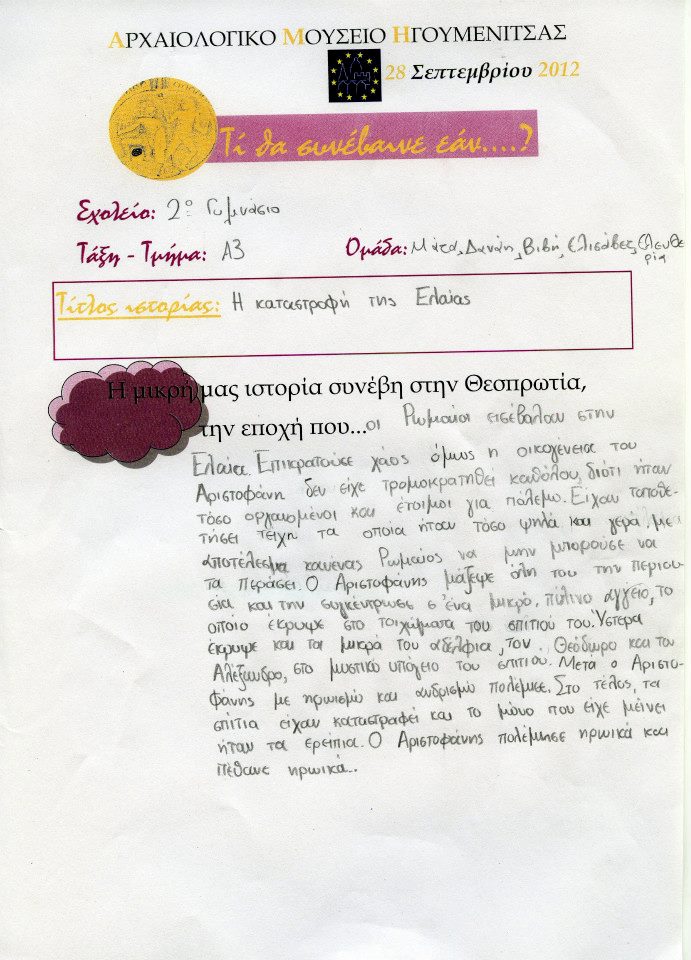 ΑΡΧΑΙΟΛΟΓΙΚΟ ΜΟΥΣΕΙΟ ΗΓΟΥΜΕΝΙΤΣΑΣ
28 Σεπτεμβρίου 2012
Τί θα συνέβαινε εάν....?
Σχολείο: 2º Γυμνάσιο
Τάξη - Τμήμα: Α3 Ομάδα: Μάτα, Δανάη, Βιβή, Ελισάβετ, Ελευθε
ρία
Τίτλος ιστορίας: Η καταστροφή της Ελαίας
Η μικρή μας ιστορία συνέβη στην Θεσπρωτία,
την εποχή που...οι Ρωμαίοι εισέβαλαν στην
Ελαία. Επικρατούσε χάος όμως η οικογένεια του
Αριστοφάνη δεν είχε τρομοκρατηθεί καθόλου, διότι ήταν
τόσο οργανωμένοι και έτοιμοι για πόλεμο. Είχαν τοποθε-
τήσει τείχη τα οποία ήταν τόσο ψηλά και γερά, με
αποτέλεσμα κανένας Ρωμαίος να μην μπορούσε να
τα περάσει. Ο Αριστοφάνης μάζεψε όλη του την περιου-
σία και την συγκέντρωσε σ'ένα μικρό, πύλινο αγγείο, το
οποίο έκρυψε στο τοιχώματα του σπιτιού του. Ύστερα
έκρυψε και τα μικρά του αδέλφια, τον. Θεόδωρο και τον
Αλέξανδρο, στο μυστικό υπόγειο του σπιτιού. Μετά ο Αριστο-
φάνης με ηρωισμό και ανδρισμό πολέμισε. Στο τέλος, τα
σπίτια είχαν καταστραφεί και το μόνο που είχε μείνει
ήταν τα ερείπια. Ο Αριστοφάνης πολέμησε ηρωικά και
πέθανε ηρωικά...